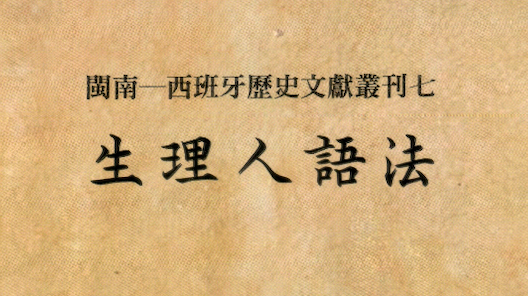 閩南─西班牙歷史文獻叢刊七
生理人語法